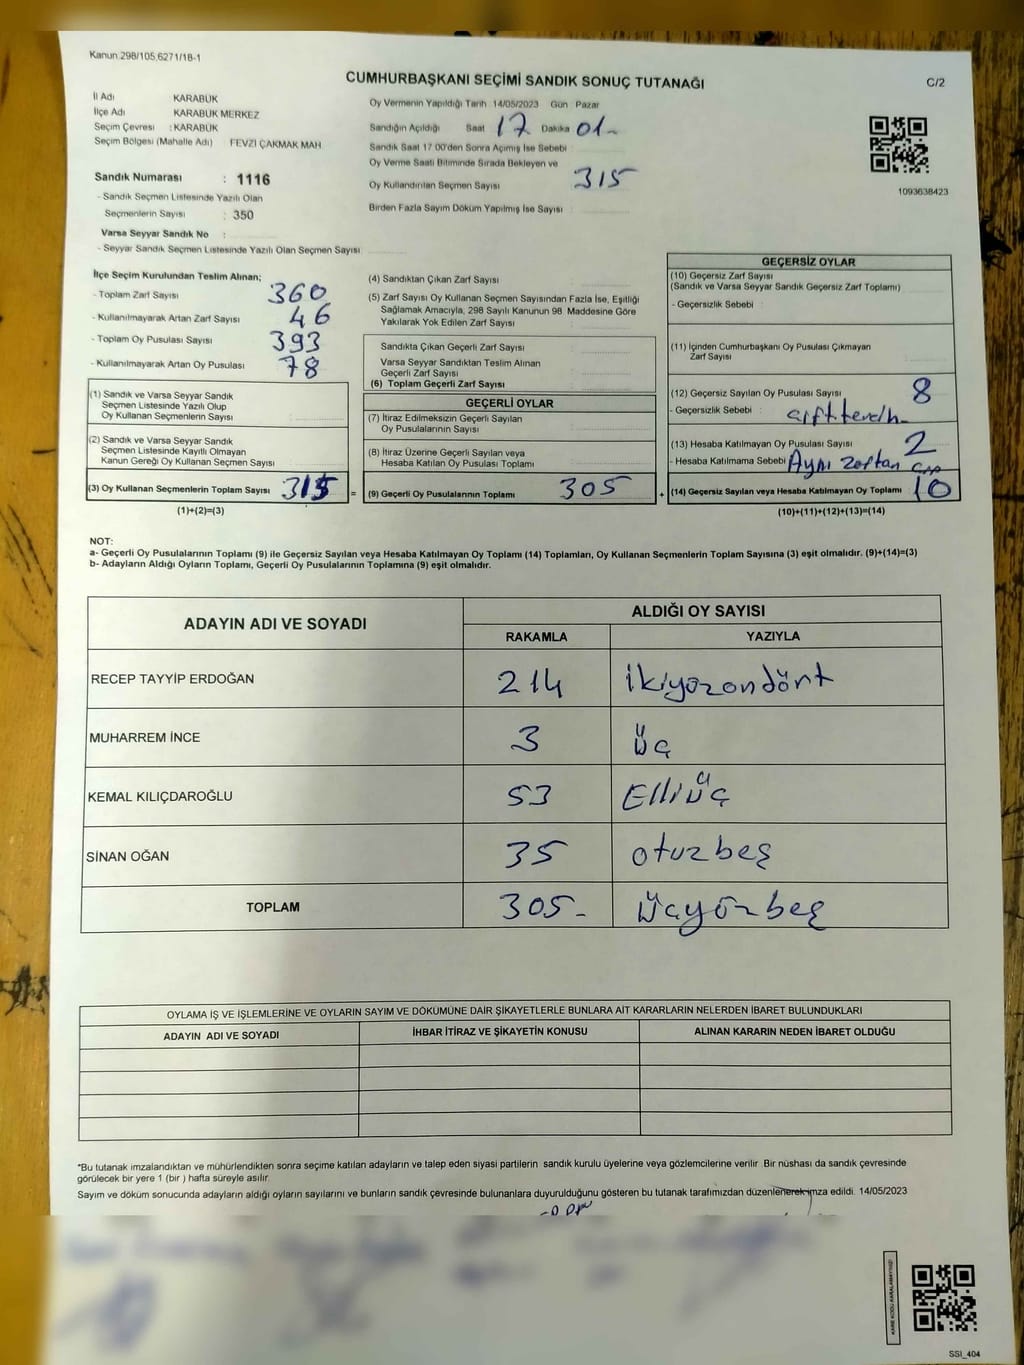 Kanun 298/105,6271/18-1
CUMHURBAŞKANI SEÇİMİ SANDIK SONUÇ TUTANAĞI
C/2
İl Adı KARABÜK
İlçe Adı KARABÜK MERKEZ
Seçim Çevresi : KARABÜK
Seçim Bölgesi (Mahalle Adı) FEVZİ ÇAKMAK MAH
Sandık Numarası : 1116
- Sandık Seçmen Listesinde Yazılı Olan
Seçmenlerin Sayısı : 350
Varsa Seyyar Sandık No :
- Seyyar Sandık Seçmen Listesinde Yazılı Olan Seçmen Sayısı
Oy Vermenin Yapıldığı Tarih 14/05/2023 Gün Pazar
Sandığın Açıldığı Saat 17 Dakika 01-
Sandık Saat 17 00'den Sonra Açılmış İse Sebebi :
Oy Verme Saati Bitiminde Sırada Bekleyen ve
Oy Kullandırılan Seçmen Sayısı 315
Birden Fazla Sayım Döküm Yapılmış İse Sayısı :
1093638423
İlçe Seçim Kurulundan Teslim Alınan;
- Toplam Zarf Sayısı 360
- Kullanılmayarak Artan Zarf Sayısı 46
- Toplam Oy Pusulası Sayısı 393
- Kullanılmayarak Artan Oy Pusulası 78
(1) Sandık ve Varsa Seyyar Sandık
Seçmen Listesinde Yazılı Olup
Oy Kullanan Seçmenlerin Sayısı :
(2) Sandık ve Varsa Seyyar Sandık
Seçmen Listesinde Kayıtlı Olmayan
Kanun Gereği Oy Kullanan Seçmen Sayısı :
(3) Oy Kullanan Seçmenlerin Toplam Sayısı 315
(1)+(2)=(3)
=
(4) Sandıktan Çıkan Zarf Sayısı :
(5) Zarf Sayısı Oy Kullanan Seçmen Sayısından Fazla İse, Eşitliği
Sağlamak Amacıyla, 298 Sayılı Kanunun 98 Maddesine Göre
Yakılarak Yok Edilen Zarf Sayısı :
Sandıkta Çıkan Geçerli Zarf Sayısı :
Varsa Seyyar Sandıktan Teslim Alınan
Geçerli Zarf Sayısı :
(6) Toplam Geçerli Zarf Sayısı :
GEÇERLİ OYLAR
(7) İtiraz Edilmeksizin Geçerli Sayılan
Oy Pusulalarının Sayısı :
(8) İtiraz Üzerine Geçerli Sayılan veya
Hesaba Katılan Oy Pusulası Toplamı :
(9) Geçerli Oy Pusulalarının Toplamı 305
+
GEÇERSİZ OYLAR
(10) Geçersiz Zarf Sayısı
(Sandık ve Varsa Seyyar Sandık Geçersiz Zarf Toplamı)
- Geçersizlik Sebebi :
(11) İçinden Cumhurbaşkanı Oy Pusulası Çıkmayan
Zarf Sayısı
(12) Geçersiz Sayılan Oy Pusulası Sayısı 8
- Geçersizlik Sebebi : çift tercih
(13) Hesaba Katılmayan Oy Pusulası Sayısı 2
- Hesaba Katılmama Sebebi Aynı zarftan
(14) Geçersiz Sayılan veya Hesaba Katılmayan Oy Toplamı 10
(10)+(11)+(12)+(13)=(14)
NOT:
a- Geçerli Oy Pusulalarının Toplamı (9) ile Geçersiz Sayılan veya Hesaba Katılmayan Oy Toplamı (14) Toplamları, Oy Kullanan Seçmenlerin Toplam Sayısına (3) eşit olmalıdır. (9)+(14)=(3)
b- Adayların Aldığı Oyların Toplamı, Geçerli Oy Pusulalarının Toplamına (9) eşit olmalıdır.
ADAYIN ADI VE SOYADI ALDIĞI OY SAYISI
RAKAMLA YAZIYLA
RECEP TAYYİP ERDOĞAN 214 ikiyüzondört
MUHARREM İNCE 3 üç
KEMAL KILIÇDAROĞLU 53 Elliüç
SİNAN OĞAN 35 otuzbeş
TOPLAM 305- üçyüzbeş
OYLAMA İŞ VE İŞLEMLERİNE VE OYLARIN SAYIM VE DÖKÜMÜNE DAİR ŞİKAYETLERLE BUNLARA AİT KARARLARIN NELERDEN İBARET BULUNDUKLARI
ADAYIN ADI VE SOYADI İHBAR İTİRAZ VE ŞİKAYETİN KONUSU ALINAN KARARIN NEDEN İBARET OLDUĞU
*Bu tutanak imzalandıktan ve mühürlendikten sonra seçime katılan adayların ve talep eden siyasi partilerin sandık kurulu üyelerine veya gözlemcilerine verilir Bir nüshası da sandık çevresinde
görülecek bir yere 1 (bir ) hafta süreyle asılır.
Sayım ve döküm sonucunda adayların aldığı oyların sayılarını ve bunların sandık çevresinde bulunanlara duyurulduğunu gösteren bu tutanak tarafımızdan düzenlenerek imza edildi. 14/05/2023
KARE KODU KARALAMAYINIZ!
SSI_404